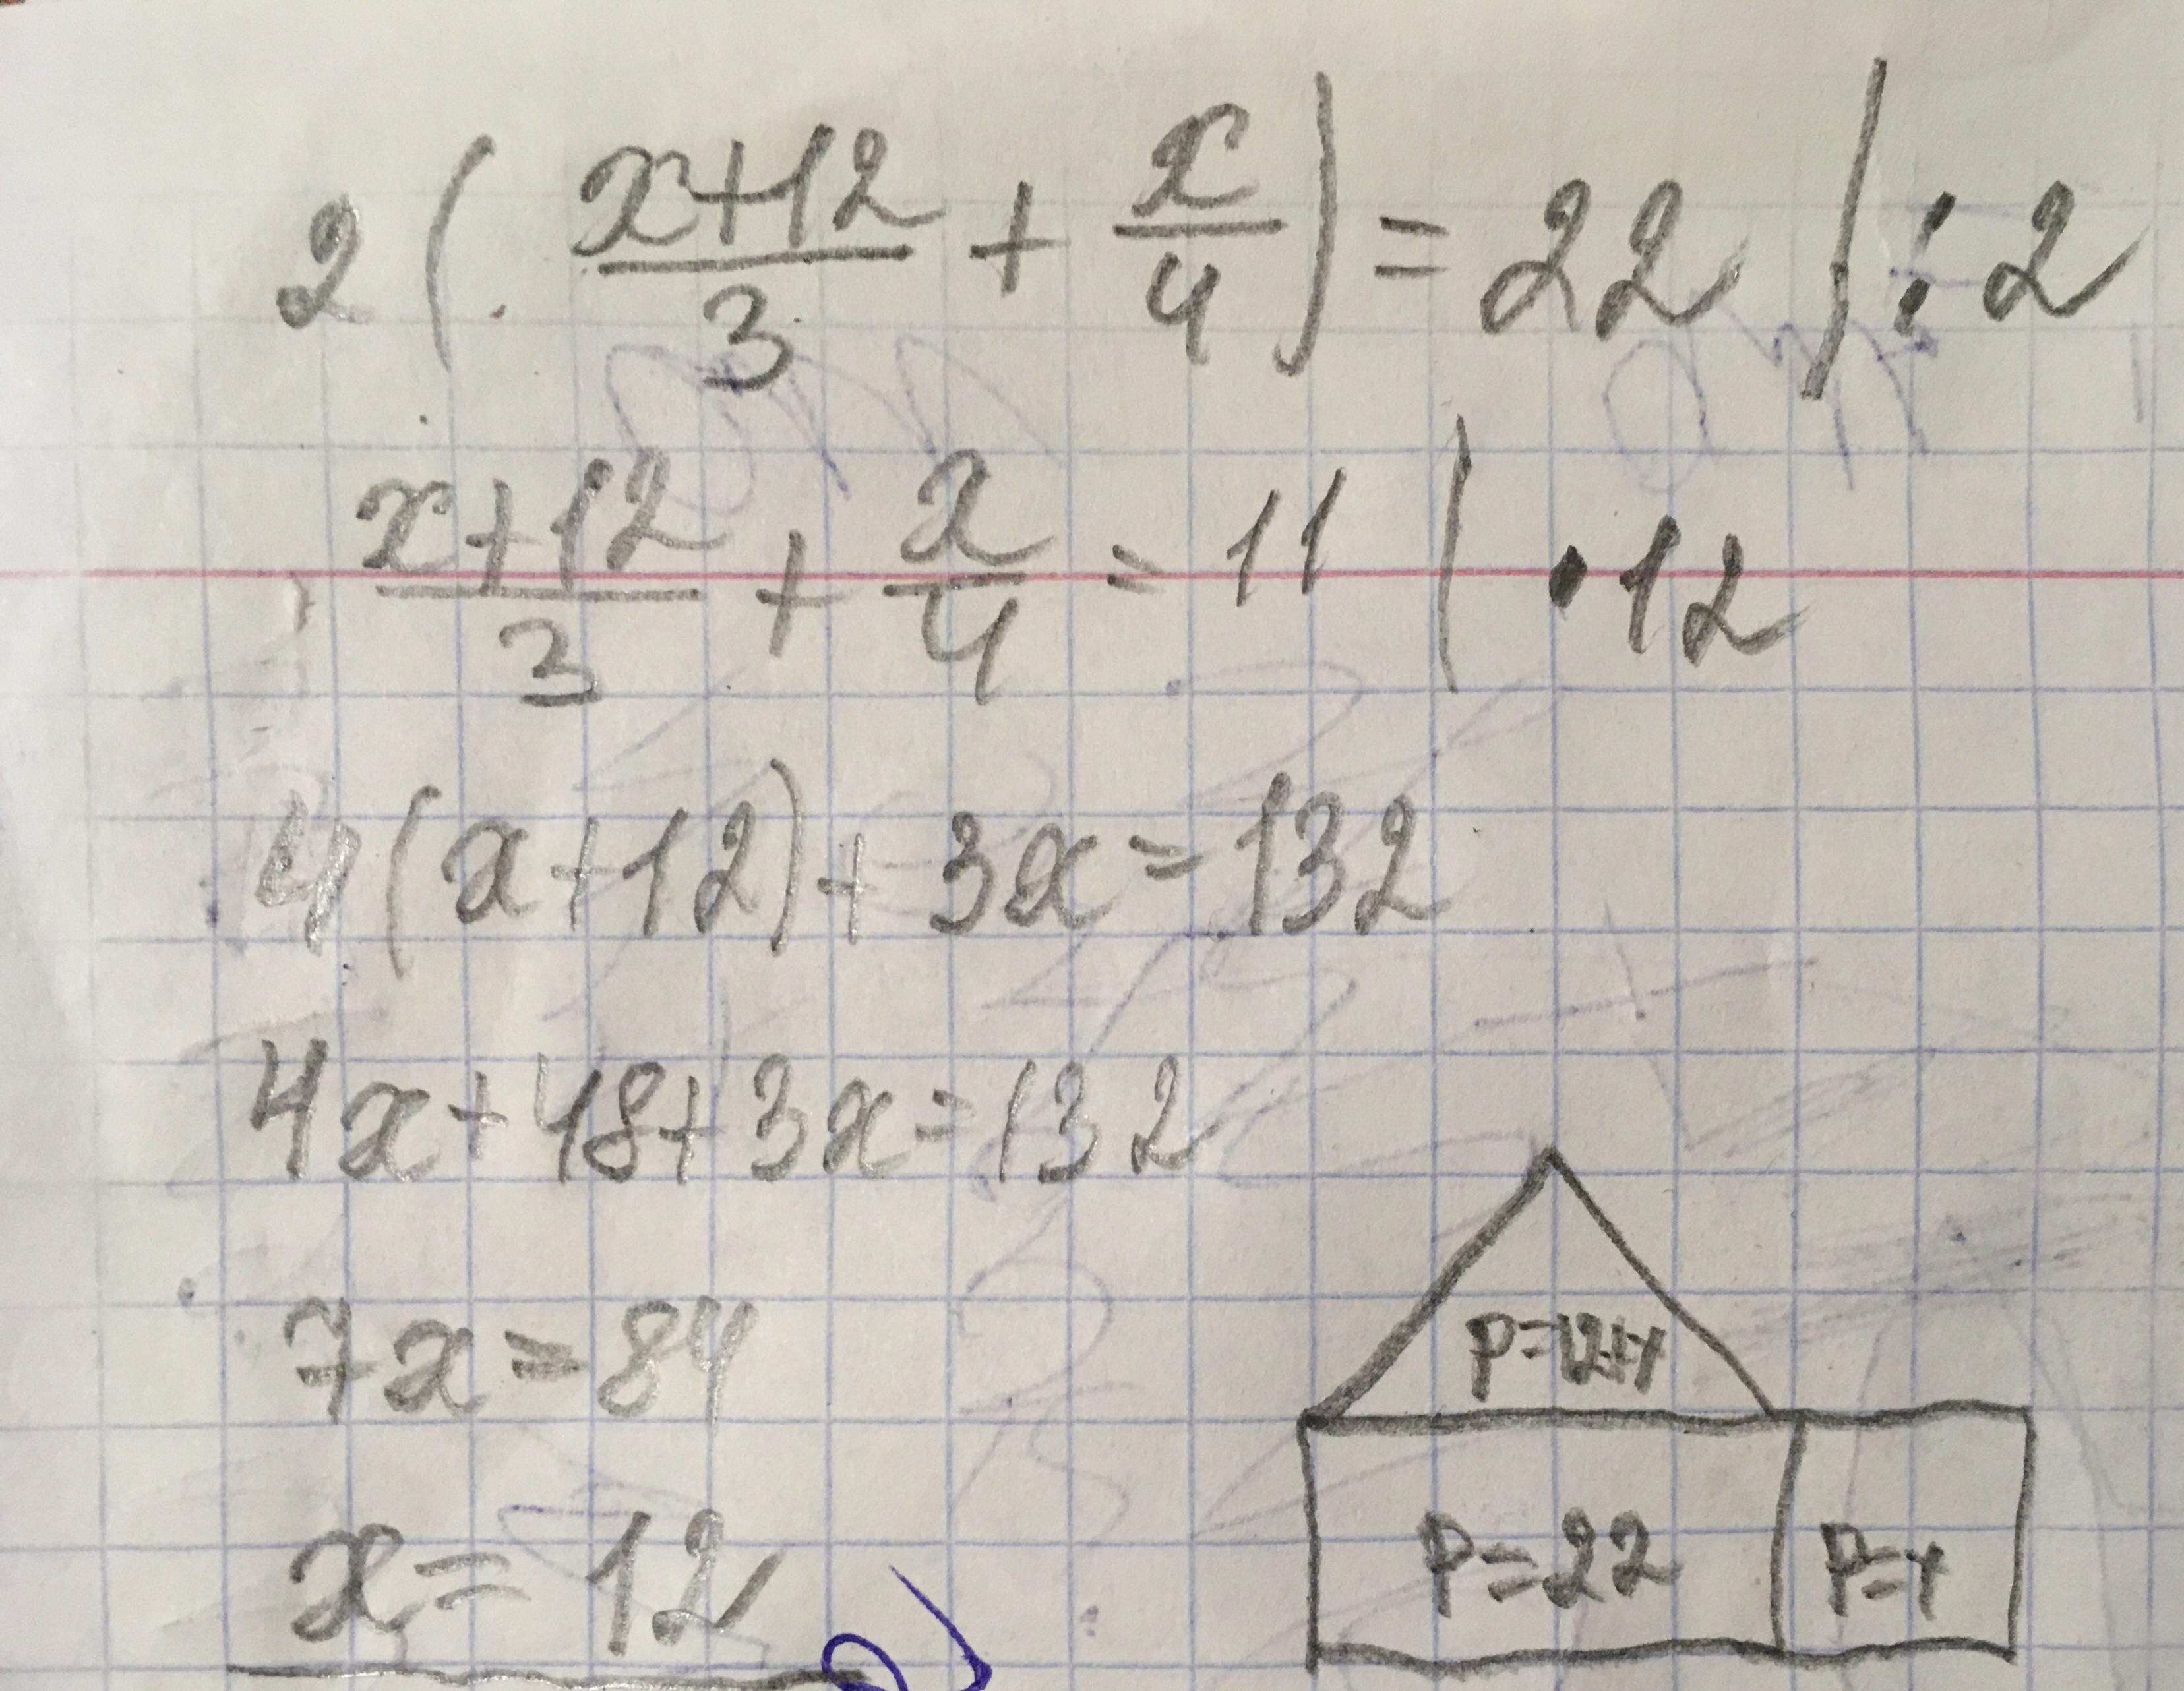 2(x+12/3 + x/4) = 22 | : 2
x+12/3 + x/4 = 11 | · 12
4(x+12) + 3x = 132
4x + 48 + 3x = 132
7x = 84
x = 12
P=12+x
P=22
P=x